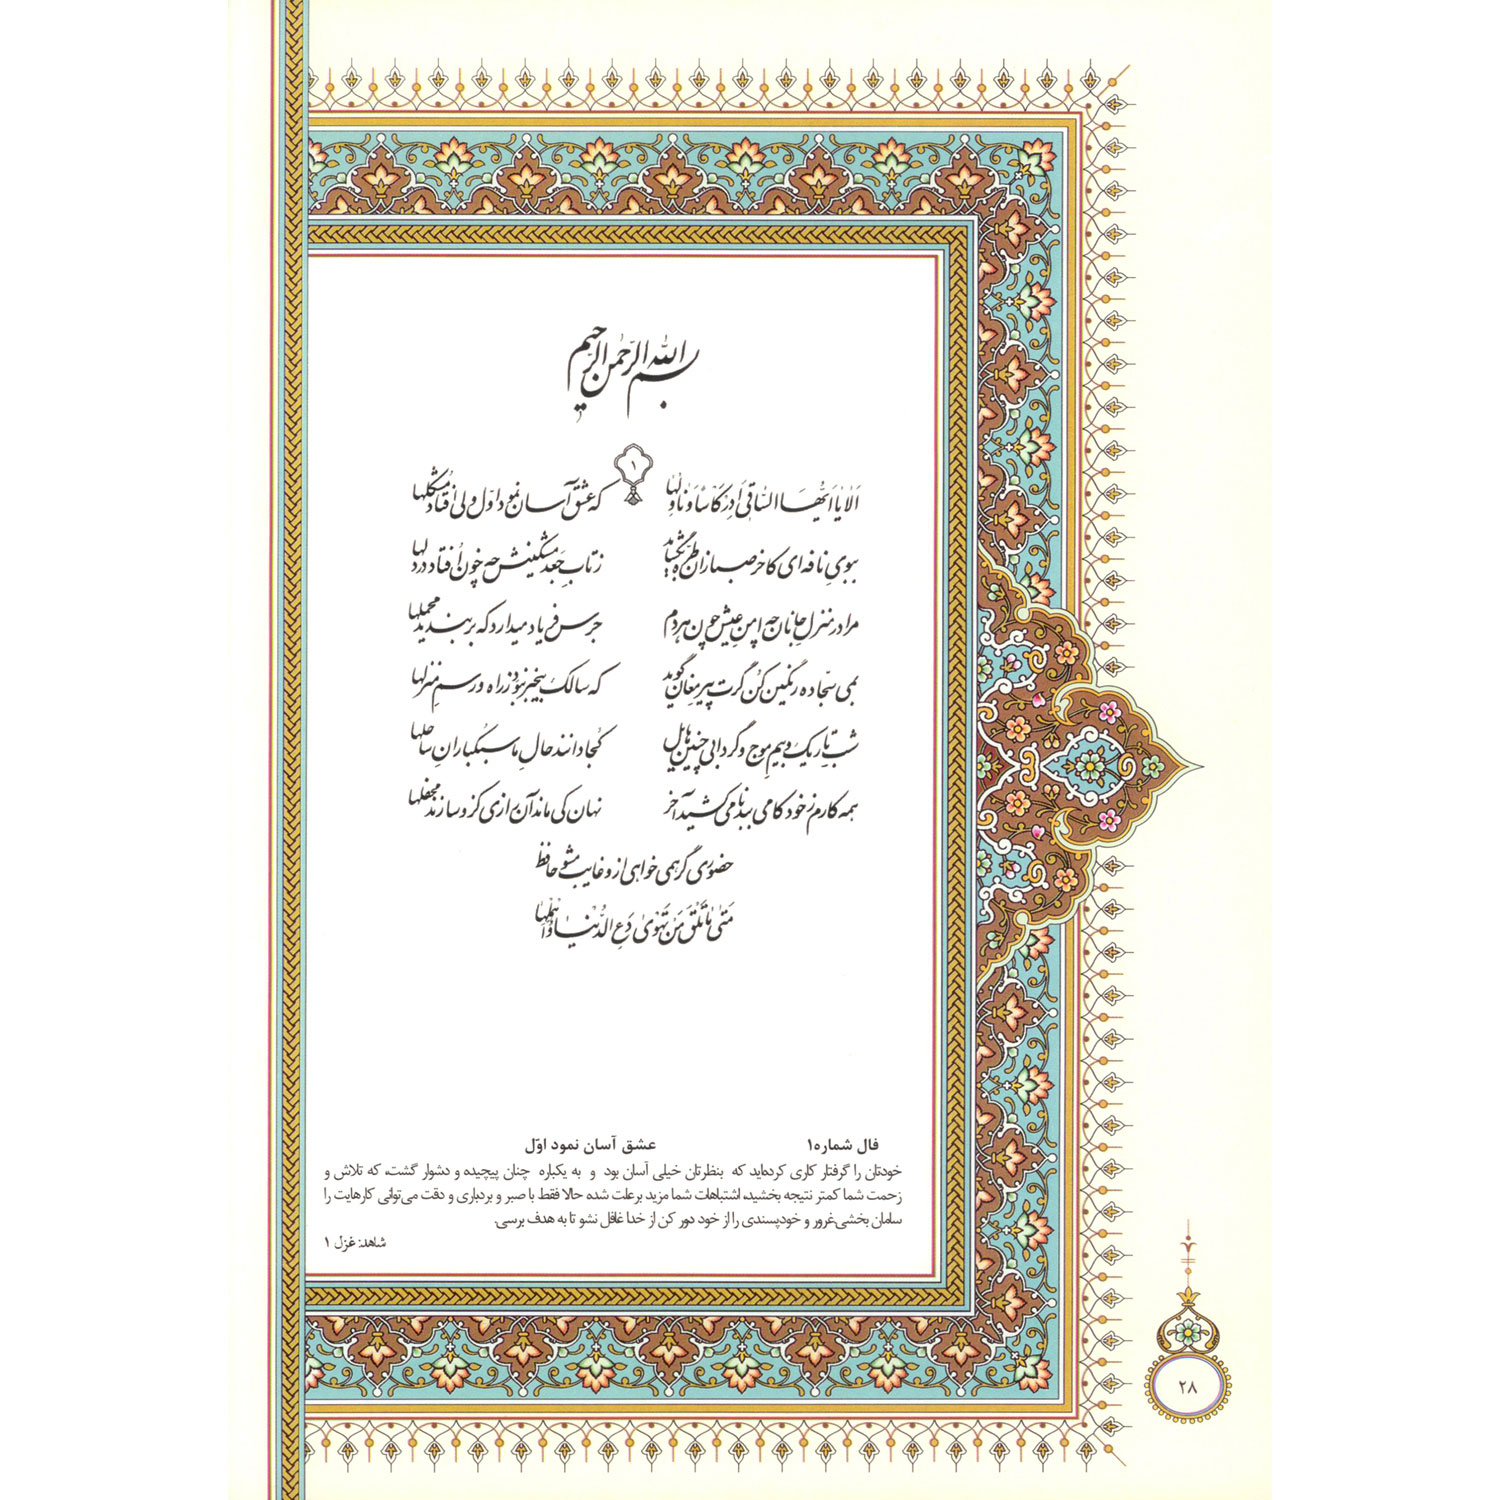 بسم الله الرحمن الرحیم
۱
اَلا یا اَیُّهَا السّاقی اَدِرْ کَأساً وَ ناوِلْها که عشق آسان نمود اوّل ولی افتاد مُشکلها
ببویِ نافه‌ای کاخر صبا زان طُرّه بگشاید ز تابِ جَعدِ مشکینش چه خون اُفتاد در دلها
مرا در منزلِ جانان چه امنِ عیش چون هر دم جرس فریاد میدارد که بربندید محملها
بمی سجّاده رنگین کن گرت پیرِ مغان گوید که سالک بیخبر نبوَد ز راه و رسمِ منزلها
شب تاریک و بیمِ موج و گردابی چنین هایل کُجا دانند حالِ ما سبکبارانِ ساحلها
همه کارم ز خود کامی ببدنامی کشید آخر نهان کی ماند آن رازی کزو سازند محفلها
حضوری گر همی خواهی ازو غایب مشو حافظ
مَتیٰ ما تَلْقَ مَنْ تَهْویٰ دَعِ الدُّنْیا وَ اَهْمِلْها
فال شماره۱ عشق آسان نمود اوّل
خودتان را گرفتار کاری کرده‌اید که بنظرتان خیلی آسان بود و به یکباره چنان پیچیده و دشوار گشت، که تلاش و
زحمت شما کمتر نتیجه بخشید، اشتباهات شما مزید برعلت شده حالا فقط با صبر و بردباری و دقت می‌توانی کارهایت را
سامان بخشی.غرور و خودپسندی را از خود دور کن از خدا غافل نشو تا به هدف برسی.
شاهد: غزل ۱
۲۸